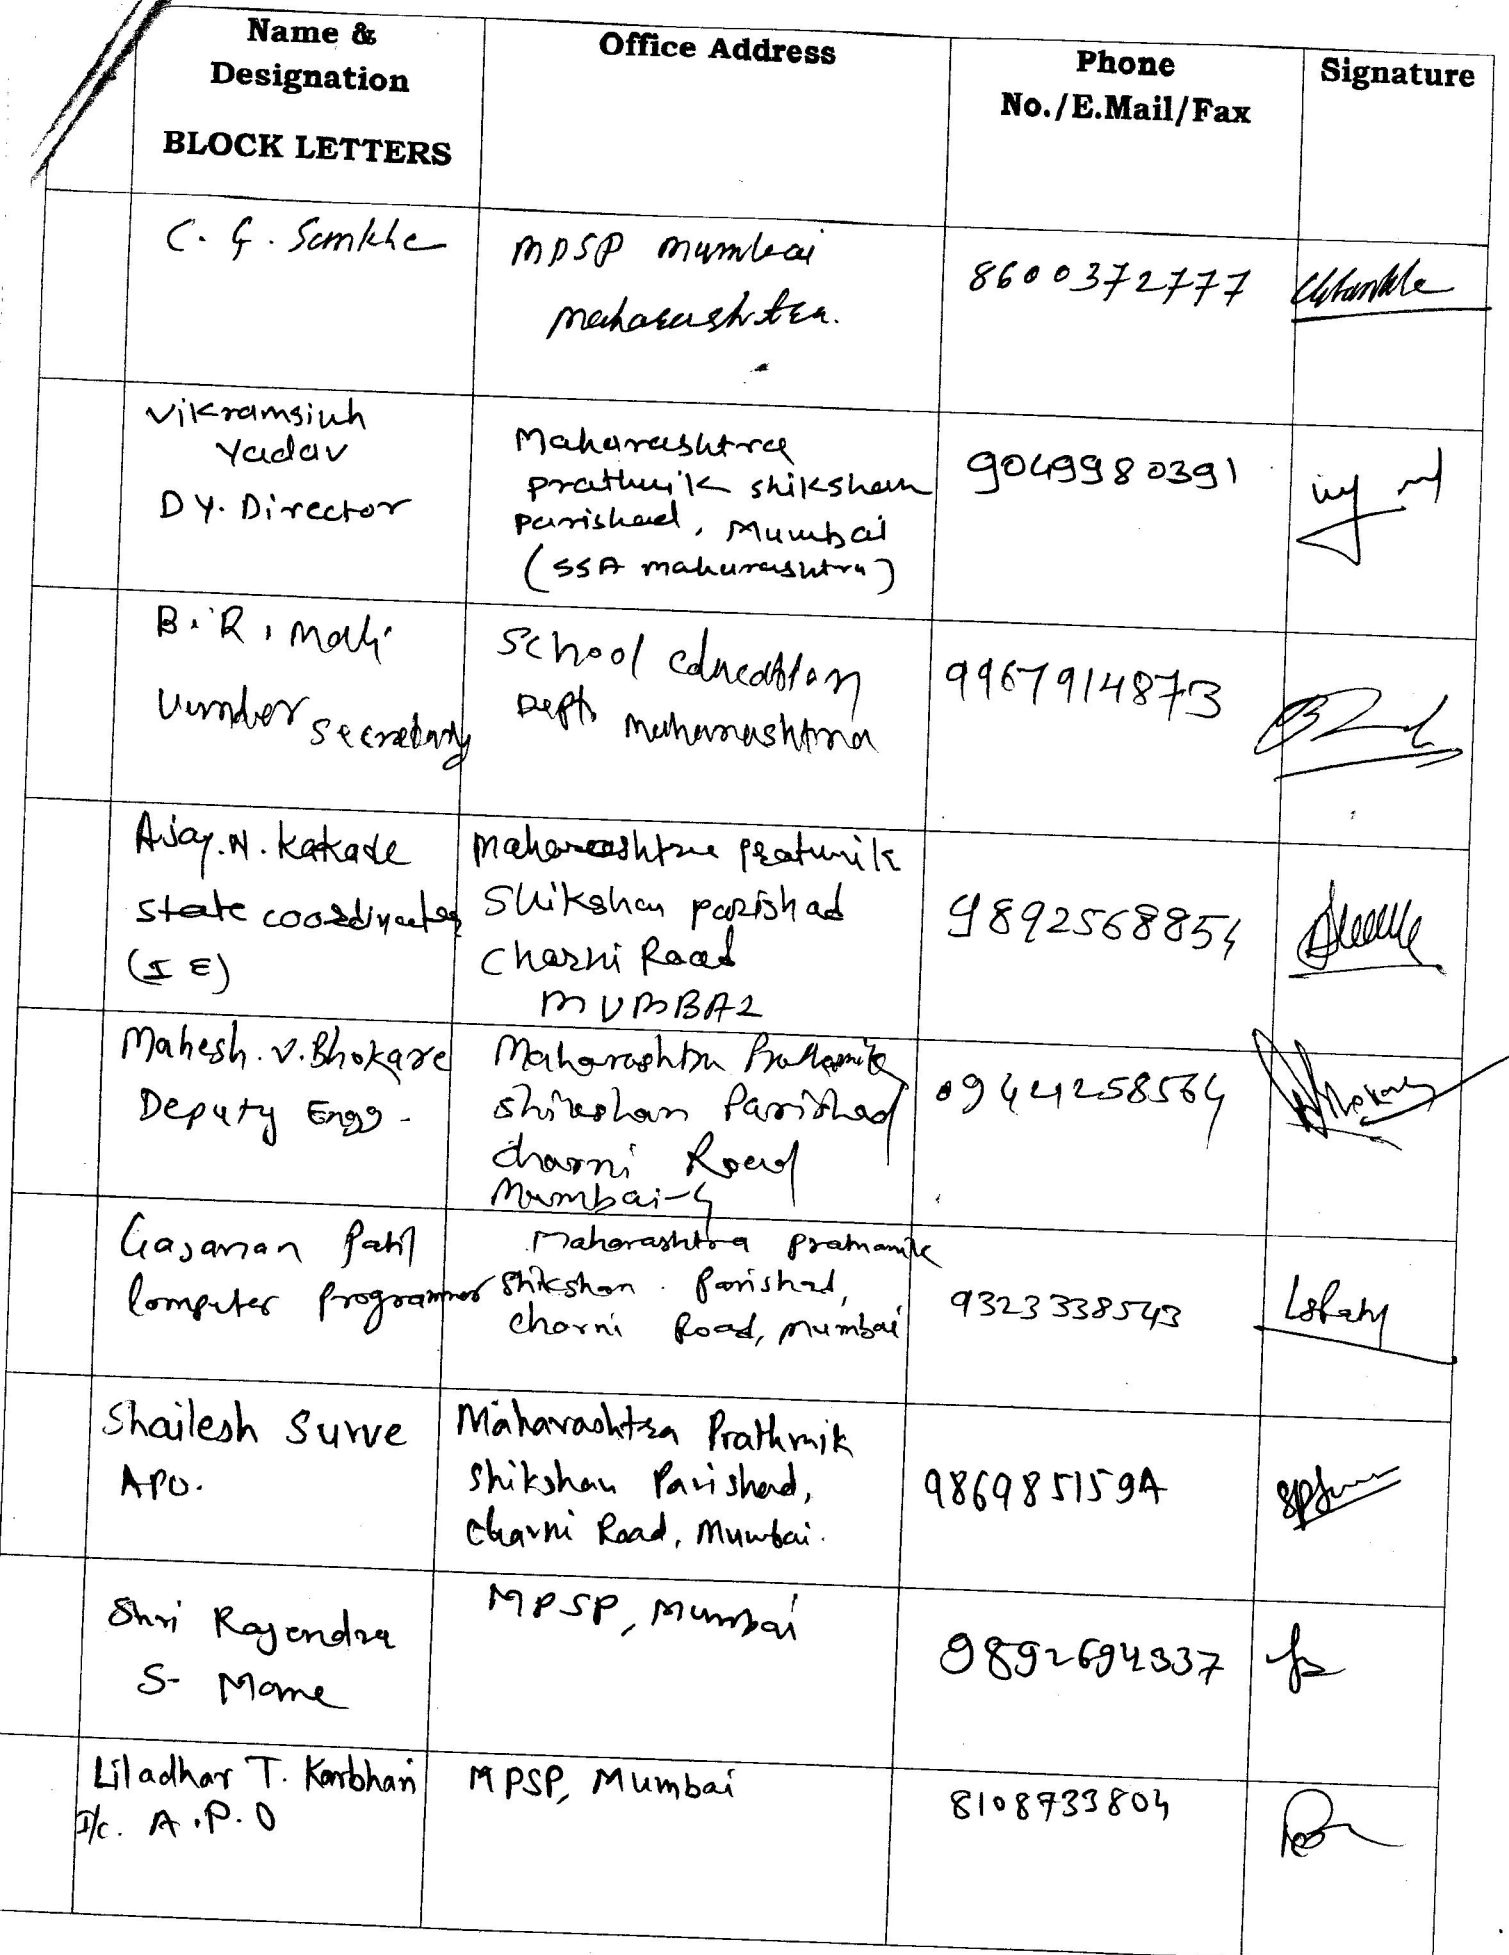 Name &
Designation
BLOCK LETTERS
Office Address
Phone
No./E.Mail/Fax
Signature
C. G. Sankhe
MPSP Mumbai
Maharashtra.
8600372777
Vikramsinh
Yadav
DY. Director
Maharashtra
prathmik shikshan
parishad, Mumbai
(SSA maharashtra)
9049980391
B. R. Mali
Under Secretary
School Education
Dept. Maharashtra
9967914873
Ajay. N. Kakade
State coordinator
(I E)
Maharashtra prathmik
Shikshan parishad
Charni Road
MUMBAI
9892568854
Mahesh. V. Bhokare
Deputy Engg.
Maharashtra Prathamik
Shikshan Parishad
charni Road
Mumbai-4
Gajanan Patil
Computer Programmer
Maharashtra prathamik
Shikshan. Parishad,
Charni Road, Mumbai
9323338543
Shailesh Surve
APO.
Maharashtra Prathmik
Shikshan Parishad,
Charni Road, Mumbai.
Shri Rajendra
S- Mane
MPSP, Mumbai
9892694337
Liladhar T. Karbhari
I/c. A.P.O
MPSP, Mumbai
8108733804